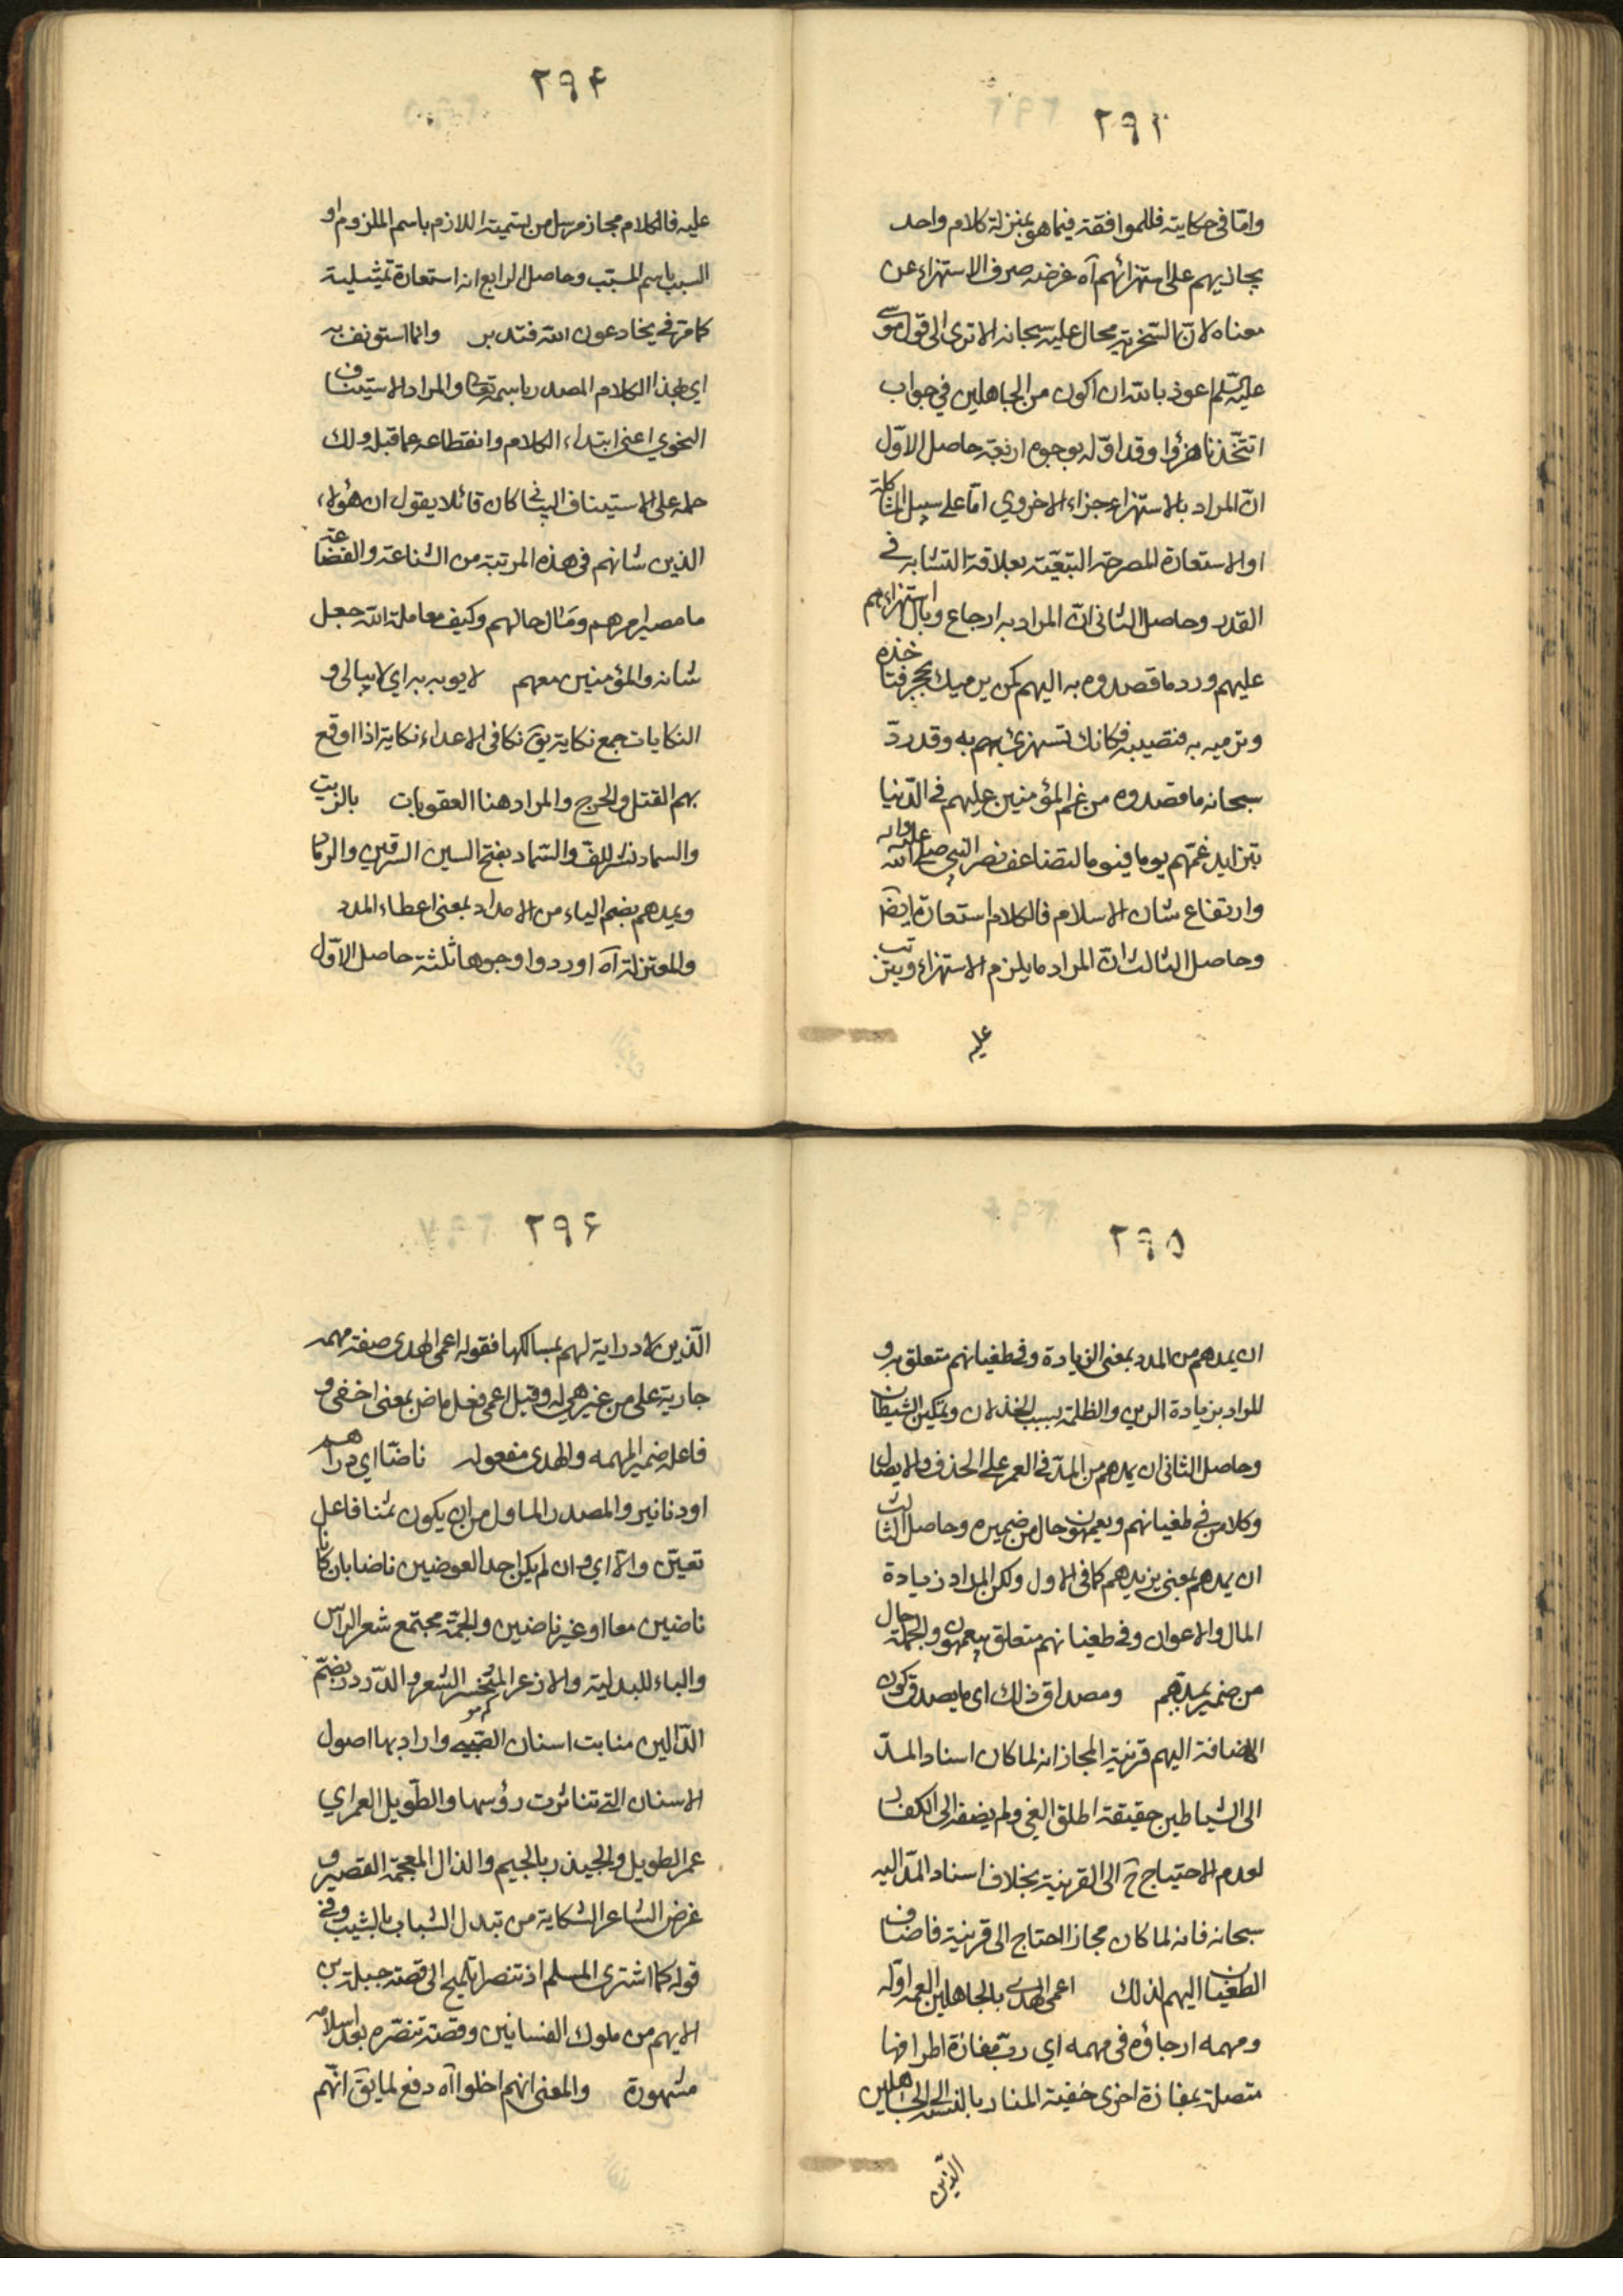 ٢٩٣
وامّا في حكايته فللموافقة فيما هو بمنزلة كلام واحد
يجازيهم على استهزائهم آه غرضه صرف الاستهزاء عن
معناه لانّ السّخرية محال عليه سبحانه الا ترى الى قول موسى
عليه السّلم اعوذ بالله ان اكون من الجاهلين في جواب
اتتّخذنا هزؤا وقد اوّله بوجوه اربعة حاصل الاوّل
انّ المراد بالاستهزاء جزاء الاخروي امّا على سبيل المشاكلة
او الاستعارة المصرحة التبعيّة بعلاقة التشابه في
القدر وحاصل الثاني انّ المراد به ارجاع وبال استهزاءهم
عليهم ورد ما قصدوه به اليهم كمن يرميك بحجر فتاخذه
وترميه به فتصيبه فكانك تستهزئ بهم به وقد ردّ
سبحانه ما قصدوه من غم المؤمنين عليهم في الدّنيا
بتزايد غمّهم يوما فيوما لتضاعف نصر النبي صلى الله عليه واله
وارتفاع شان الاسلام فالكلام استعارة ايضا
وحاصل الثالث انّ المراد ما يلزم الاستهزاء ويترتب
عليه
٢٩۴
عليه فالكلام مجاز مرسل من تسمية اللازم باسم الملزوم او
السبب باسم المسبّب وحاصل الرابع انه استعارة تمثيلية
كما مرّ في يخادعون الله فتدبر وانما استونف به
اي بهذا الكلام المصدر باسمه تعالى والمراد الاستيناف
النحوي اعني ابتداء الكلام وانقطاعه عما قبله ولك
حمله على الاستيناف البياني كان قائلا يقول ان هؤلاء
الذين شانهم في هذه المرتبة من الشناعة والفضاعة
ما مصير امرهم ومآل حالهم وكيف معاملة الله جعل
شانه والمؤمنين معهم لا يوبه به اي لا يبالى و
النكايات جمع نكاية يق نكا في الاعداء نكاية اذا اوقع
بهم القتل والجرح والمراد هنا العقوبات بالزيت
والسماد نشر للفّ والسّماد بفتح السين السرقين والرماد
ويمدهم بضم الياء من الامداد بمعنى اعطاء المدد
والمعتزلة آه اوردوا وجوها ثلثة حاصل الاوّل
٢٩۵
ان يمدهم من المدد بمعنى الزيادة وفي طغيانهم متعلق به و
المراد بزيادة الرين والظلمة بسبب الخذلان وتمكين الشيطان
وحاصل الثاني ان يمدهم من المدّ في العمر على الحذف والايصال
وكلا من في طغيانهم ويعمهون حال من ضميره وحاصل الثالث
ان يمدهم بمعنى يزيدهم كما في الاول ولكن المراد زيادة
المال والاعوان وفي طغيانهم متعلق بيعمهون والجملة حال
من ضمير يمدهم ومصداق ذلك اى ما يصدق كون
الاضافة اليهم قرينة المجاز انه لما كان اسناد المدّ
الى الشياطين حقيقة اطلق الغي ولم يضفه الى الكفار
لعدم الاحتياج ح الى القرينة بخلاف اسناد المدّ اليه
سبحانه فانه لما كان مجازا احتاج الى قرينة فاضاف
الطغيان اليهم لذلك اعمى الهدى بالجاهلين العمه اوّله
ومهمه ارجاؤه في مهمه اي ربّ مفازة اطرافها
متصلة بمفازة اخرى خفية المنار بالنسبة الى الجاهلين
الّذين
٢٩۶
الّذين لا دراية لهم بمسالكها فقوله اعمى الهدى صفة مهمه
جارية على من غير هي له وقيل اعمى فعل ماض بمعنى اخفى و
فاعله ضمير المهمه والهدى مفعوله ناضّا اي دراهم
او دنانير والمصدر الماول من ان يكون ثمنا فاعل
تعيّن والّا اي وان لم يكن احد العوضين ناضا بان كانا
ناضين معا او غير ناضين والجمّة مجتمع شعر الراس
والباء للبدلية والازعر المنحسر الشعر والدّردر بضمّ
الدّالين منابت اسنان الصّبي وارادبها اصول
الاسنان التي تناثرت رؤسها والطّويل العمر اي
عمر الطويل والجيذر بالجيم والذال المعجمة القصير و
غرض الشاعر الشكاية من تبدل الشباب بالشيب وفي
قوله كما اشترى المسلم اذ تنصرا تلميح الى قصة جبلة بن
الايهم من ملوك الغسانيين وقصة تنصّره بعد اسلامه
مشهورة والمعنى انهم اخلوا آه دفع لما يق انّهم